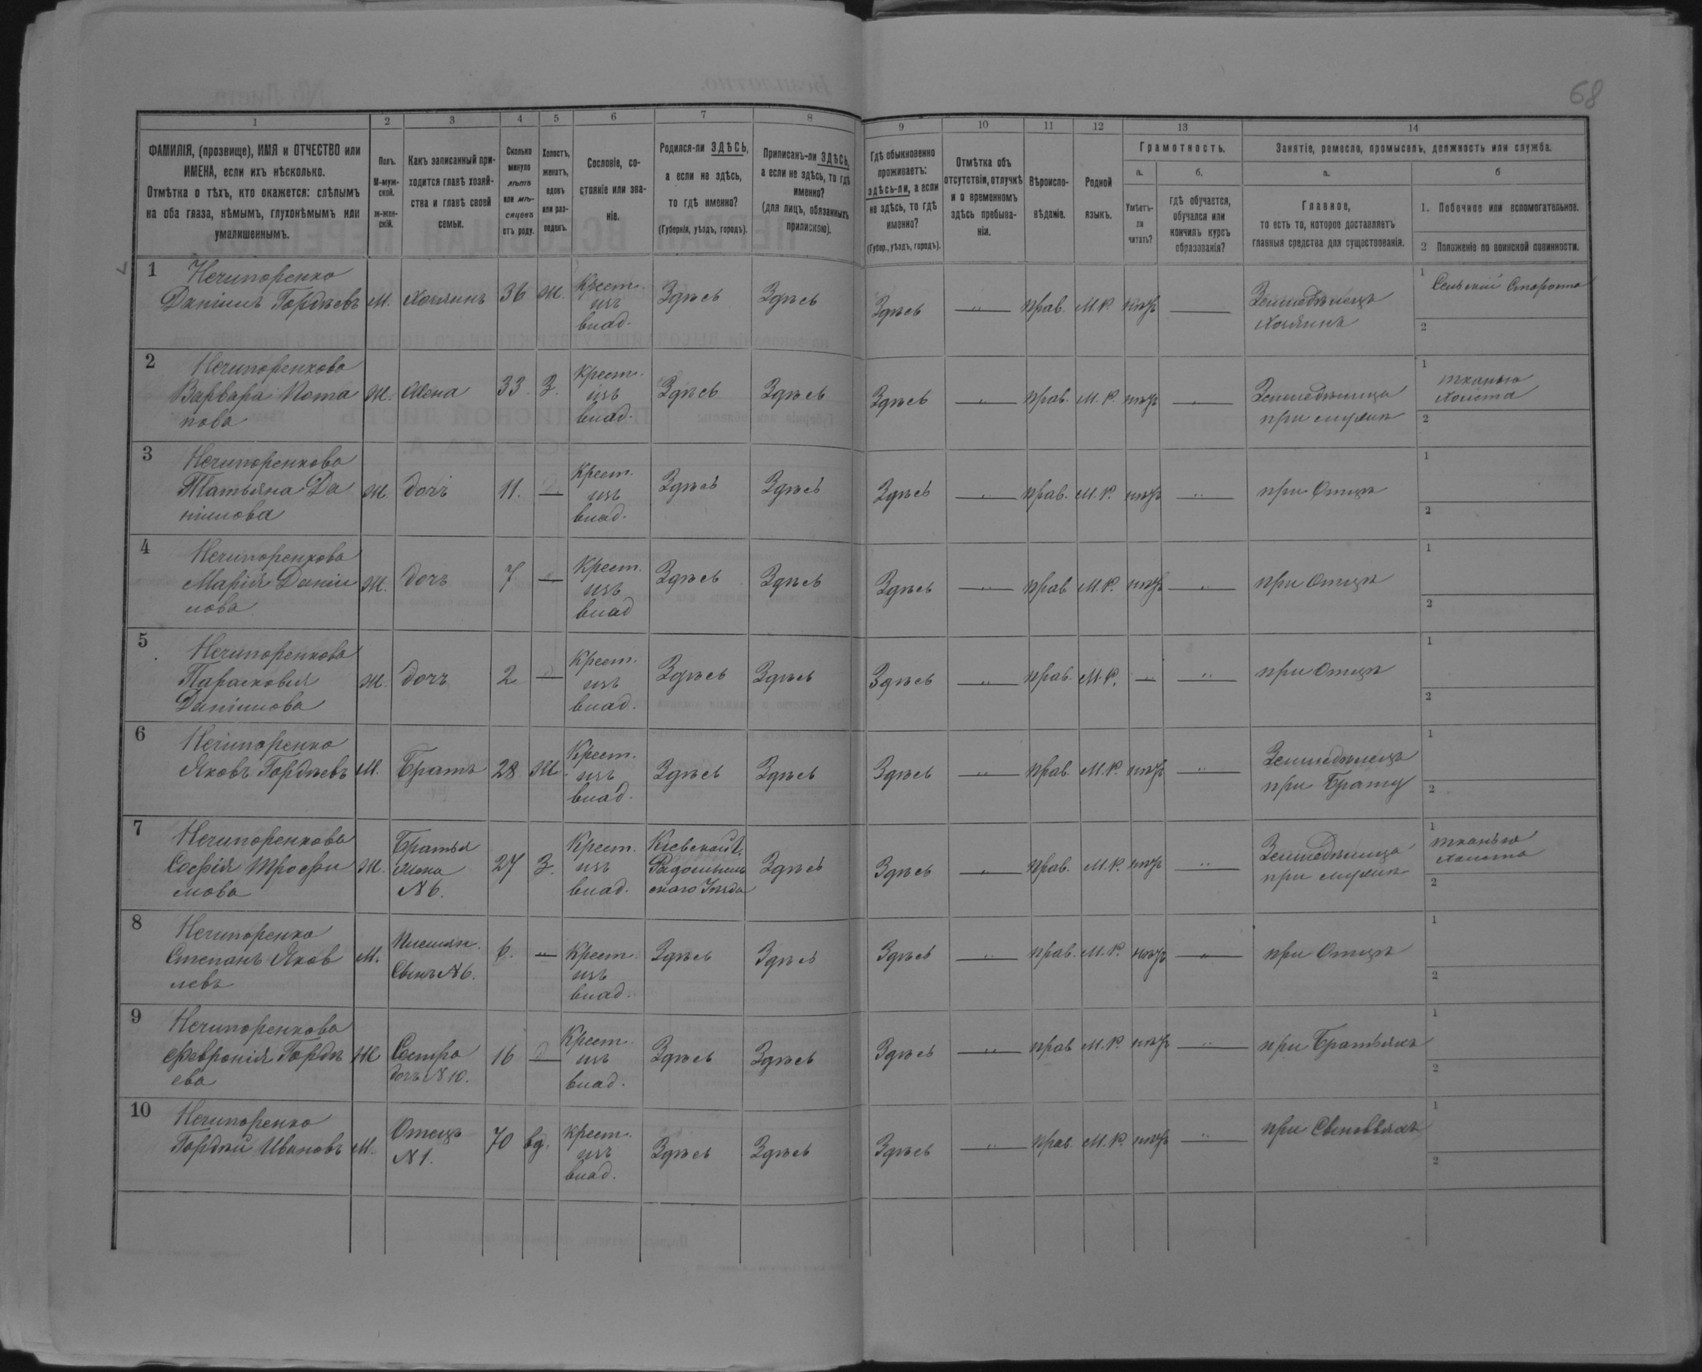 68
1 2 3 4 5 6 7 8 9 10 11 12 13 14
ФАМИЛІЯ, (прозвище), ИМЯ и ОТЧЕСТВО или
ИМЕНА, если ихъ нѣсколько.
Отмѣтка о тѣхъ, кто окажется: слѣпымъ
на оба глаза, нѣмымъ, глухонѣмымъ или
умалишеннымъ.
Полъ.
М-муж-
ской.
ж-жен-
скій.
Какъ записанный при-
ходится главѣ хозяй-
ства и главѣ своей
семьи.
Сколько
минуло
лѣтъ
или мѣ-
сяцевъ
отъ роду.
Холостъ,
женатъ,
вдовъ
или раз-
веденъ.
Сословіе, со-
стояніе или зва-
ніе.
Родился-ли ЗДѢСЬ,
а если не здѣсь,
то гдѣ именно?
(Губернія, уѣздъ, городъ).
Приписанъ-ли ЗДѢСЬ,
а если не здѣсь, то гдѣ
именно?
(для лицъ, обязанныхъ
припискою).
Гдѣ обыкновенно
проживаетъ:
здѣсь-ли, а если
не здѣсь, то гдѣ
именно?
(Губер., уѣздъ, городъ).
Отмѣтка объ
отсутствіи, отлучкѣ
и о временномъ
здѣсь пребыва-
ніи.
Вѣроиспо-
вѣданіе.
Родной
языкъ.
Грамотность.
а.
Умѣетъ-
ли
читать?
б.
гдѣ обучается,
обучался или
кончилъ курсъ
образованія?
Занятіе, ремесло, промыселъ, должность или служба.
а.
Главное,
то есть то, которое доставляетъ
главныя средства для существованія.
б
1. Побочное или вспомогательное.
2 Положеніе по воинской повинности.
1 Нечипоренко
Даніилъ Гордѣевъ М. Хозяинъ 36 Ж. Крест. изъ влад. Здѣсь Здѣсь Здѣсь — прав. М.Р. нѣтъ — Земледѣлецъ Хозяинъ 1 Сельскій Староста 2
2 Нечипоренкова
Варвара Пота
пова Ж. Жена 33 З. Крест. изъ влад. Здѣсь Здѣсь Здѣсь — „ — прав. М.Р. нѣтъ — „ — Земледѣлица при мужѣ 1 тканью холста 2
3 Нечипоренкова
Татьяна Да
ніилова Ж. дочь 11. — Крест. изъ влад. Здѣсь Здѣсь Здѣсь — „ — прав. М.Р. нѣтъ — „ — при Отцѣ 1 2
4 Нечипоренкова
Марія Даніи
лова Ж. дочь 7 — Крест. изъ влад Здѣсь Здѣсь Здѣсь — „ — прав М.Р. нѣтъ — „ — при Отцѣ 1 2
5 Нечипоренкова
Парасковія
Даніилова Ж. дочь 2 — Крест. изъ влад. Здѣсь Здѣсь Здѣсь — „ — прав. М.Р. — — „ — при Отцѣ 1 2
6 Нечипоренко
Яковъ Гордѣевъ М. Братъ 28 Ж Крест. изъ влад. Здѣсь Здѣсь Здѣсь — „ — прав. М.Р. нѣтъ — „ — Земледѣлецъ при Брату 1 2
7 Нечипоренкова
Софія Трофи
мова Ж. Братья жена N 6. 27 З. Крест. изъ влад. Кіевской Г. Радомысль скаго Уѣзда Здѣсь Здѣсь — „ — прав. М.Р. нѣтъ — „ — Земледѣлица при мужѣ 1 тканью холста 2
8 Нечипоренко
Степанъ Яков
левъ М. Племян. Сынъ N 6. 6. — Крест. изъ влад. Здѣсь Здѣсь Здѣсь — „ — прав. М.Р. нѣтъ — „ — при Отцѣ 1 2
9 Нечипоренкова
Февронія Гордѣ
ева Ж Сестра дочь N 10. 16 — Крест. изъ влад. Здѣсь Здѣсь Здѣсь — „ — прав М.Р. нѣтъ — „ — при Братьяхъ 1 2
10 Нечипоренко
Гордѣй Ивановъ М. Отецъ N 1. 70 вд. Крест. изъ влад. Здѣсь Здѣсь Здѣсь — „ — прав. М.Р. нѣтъ — „ — при Сыновьяхъ 1 2